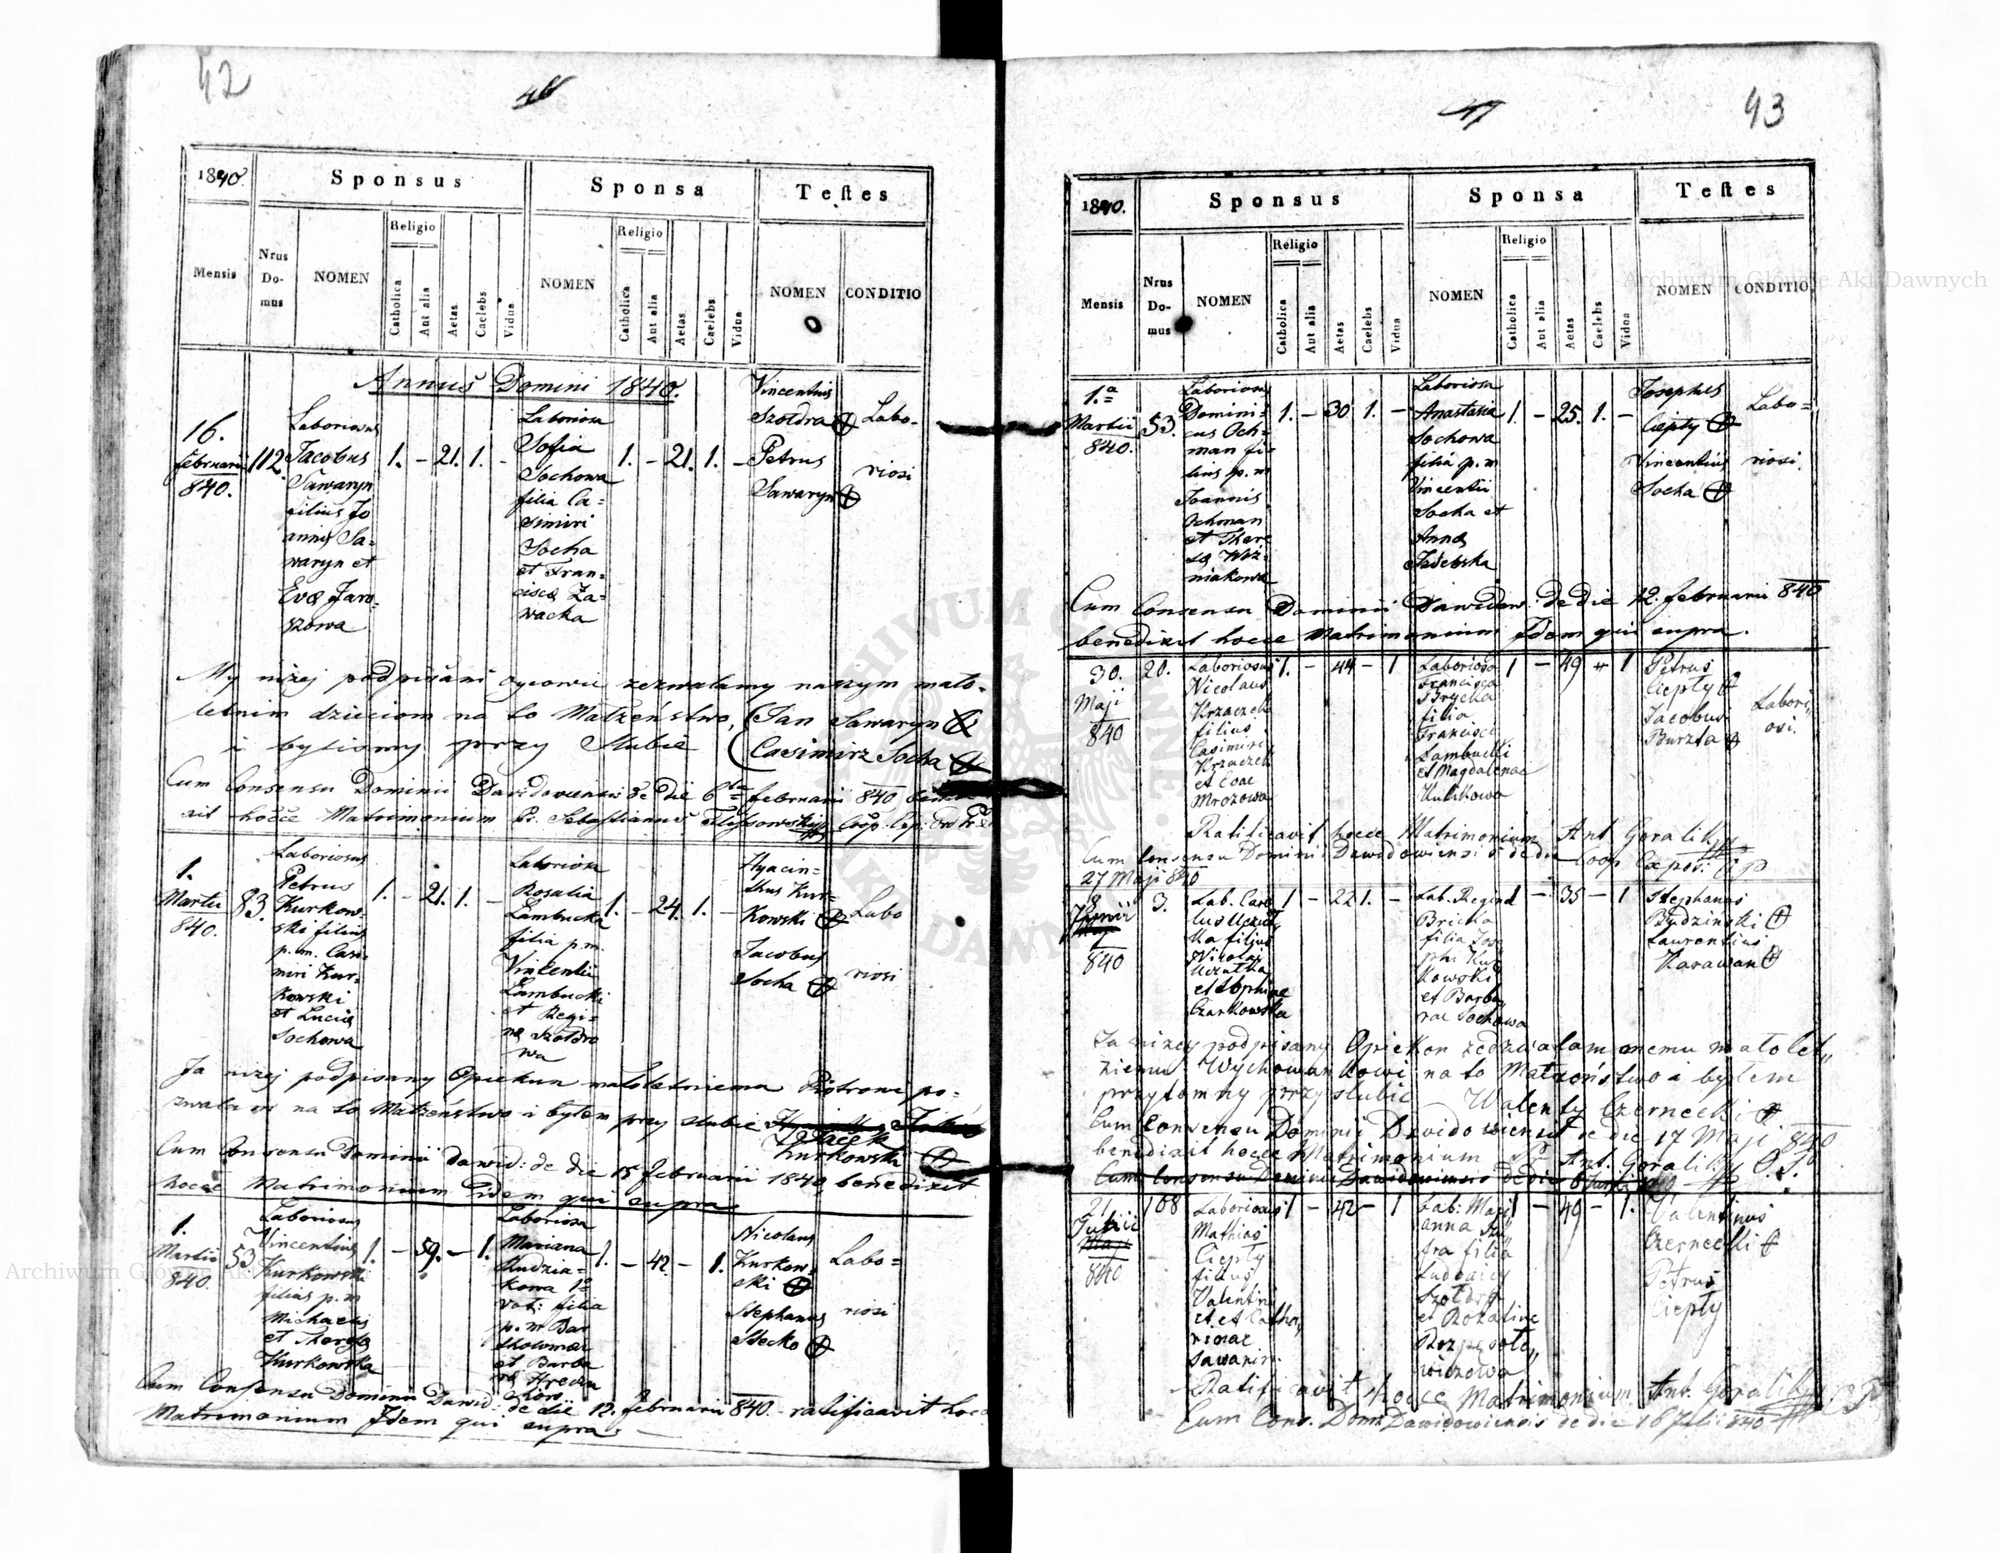 42
46
1840.
Sponsus
Sponsa
Testes
Mensis
Nrus Domus
NOMEN
Religio
Catholica
Aut alia
Aetas
Caelebs
Vidua
NOMEN
Religio
Catholica
Aut alia
Aetas
Caelebs
Vidua
NOMEN
CONDITIO
Annus Domini 1840.
16.
februarii
840.
112.
Laboriosus
Jacobus
Sawaryn
filius Jo
annis Sa=
waryn et
Evæ Jaro=
szowa
1. – 21. 1. –
Laboriosa
Sofia
Sochowa
filia Ca=
simiri
Socha
et Fran=
ciscæ Za=
wacka
1. – 21. 1. –
Vincentius
Szoldra
Petrus
Sawaryn
Labo-
riosi
My niżej podpisani oycowie zezwalamy naszym mało-
letnim dzieciom na to Małżeństwo, (Jan Sawaryn
i byliomy przy Slubie (Casimirz Socha
Cum Consensu Dominii Davidoviensis de die 6ta februarii 840
hocce Matrimonium Sebastianus
1.
Martii
840.
83.
Laboriosus
Petrus
Kurkow-
ski filius
p.m. Casi-
miri Kur-
kowski
et Luciæ
Sochowa
1. – 21. 1. –
Laboriosa
Rosalia
Lambucka
filia p.m.
Vincentii
Lambucki
et Regi=
næ Szoldro
wa
1. – 24. 1. –
Hyacin=
thus Kur-
kowski
Jacobus
Socha
Labo
riosi
Ja niżej podpisany Opiekun małoletniema Piotrowi po=
zwalam na to Małżeństwo i byłem przy slubie
Jacek
Kurkowski
Cum Consensu Dominii Dawid: de die 15 februarii 1840, benedixit
hocce Matrimonium Idem qui supra
1.
Martii
840.
53
Laboriosus
Vincentius
Kurkowski
filius p.m
Michaelis
et Theresæ
Kurkowska
1. – 59. – 1.
Laboriosa
Mariana
Rudzia=
kowa
vot: filia
p.m Bar
tholomæi
et Barba
ræ
1. – 42. – 1.
Nicolaus
Kurkow=
ski
Stephanus
Stecko
Labo=
riosi
Cum Consensu Dominii Dawid: de die 12. februarii 840. – ratificavit hocce
Matrimonium Idem qui supra.
47
43
1840.
Sponsus
Sponsa
Testes
Mensis
Nrus Domus
NOMEN
Religio
Catholica
Aut alia
Aetas
Caelebs
Vidua
NOMEN
Religio
Catholica
Aut alia
Aetas
Caelebs
Vidua
NOMEN
CONDITIO
1.a
Martii
840.
53.
Laboriosus
Domini=
cus Och=
man fi=
lius p.m
Joannis
Ochman
et There
sæ Woź=
niakowa
1. – 30 1. –
Laboriosa
Anastasia
Sochowa
filia p.m
Vincentii
Socha et
Annæ
1. – 25. 1. –
Josephus
Ciepły
Vincentius
Socha
Labo=
riosi.
Cum Consensu Dominii Dawidow: de die 12. februarii 840
benedixit hocce Matrimonium Idem qui supra.
30.
Maji
840
20.
Laboriosus
Nicolaus
Krzaczek
filius
Casimiri
Krzaczek
et Evae
Mrozowa
1. – 44 – 1
Laboriosa
Francisca
Brycka
filia
Francisci
Lambucki
et Magdalenae
Kulikowa
1 – 49 – 1
Petrus
Ciepły
Jacobus
Burzta
Labori,,
osi.
Ratificavit hocce Matrimonium Ant Goralik
Cum Consensu Dominii Dawidowiensis de die Coop
27 Maji 840
8
Junii
840
3.
Lab. Caro
lus
ka filius
Nikolai
et Sophiae
Czarkowska
1 – 22 1. –
Lab. Regina
Bricka
filia Jose
phi Kur
kowski
et Barba
rae Sochowa
1 – 35 – 1
Stephanus
Budzinski
Laurentius
Karawan
Ja nizey podpisany Opiekon zedzwalam memu małolet,,
niemu Wychowankowi na to Małzeństwo i byłem
przytomny przy slubie Walenty Czernecki
Cum Consensu Dominii Dawidowiensis de die 17 Maji 840
benedixit hocce Matrimonium Ant. Goralik
Cum Consensu Dominii Dawidowiensis de die
21
Julii
840
108
Laboriosus
Mathias
Ciepły
filius
Valentini
et Catha,
rinae
1 – 42 – 1
Lab: Mari
anna
filia
Ludovici
Szoldra
et Rozaliae
1 – 49 – 1.
Valentinus
Czernecki
Petrus
Ciepły
Ratificavit hocce Matrimonium Ant. Goralik
Cum Cons. Domi. Dawidowiensis de die 16 Julii 840
Archiwum Główne Akt Dawnych
Archiwum Główne Akt Dawnych
ARCHIWUM GŁÓWNE AKT DAWNYCH